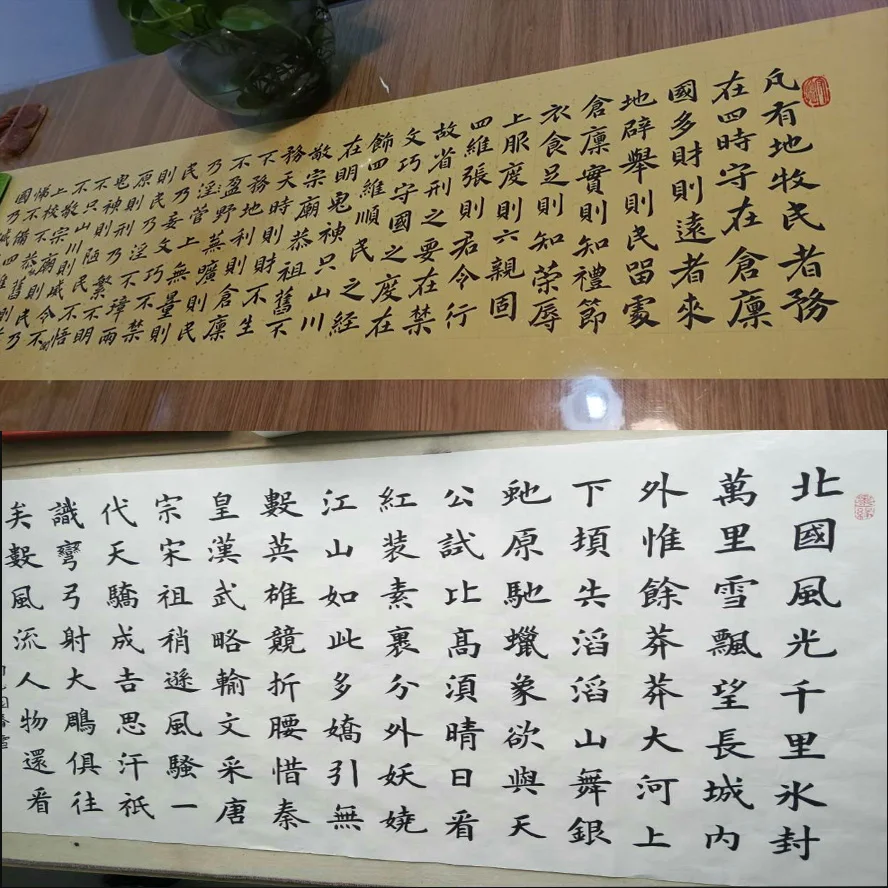 凡有地牧民者務
在四時守在倉廪
國多財則遠者來
地辟舉則民留處
倉廪實則知禮節
衣食足則知榮辱
上服度則六親固
四維張則君令行
故省刑之要在禁
文巧守國之度在
飾四維順民之經
在明鬼神只山川
敬宗廟恭祖舊不
務天時則財不生
不務地利則倉廪
不盈野蕪曠則民
乃淫菅上無量則
民乃妄文巧不禁
則民乃淫不璋兩
原則刑乃繁不明
鬼神則陋民不悟
不只山川則威令
不敬宗廟則民乃
上校不恭舊則
悌不備四維
國乃滅
北國風光千里氷封
萬里雪飄望長城内
外惟餘莽莽大河上
下頓失滔滔山舞銀
蛇原馳蠟象欲與天
公試比高須晴日看
紅装素裹分外妖嬈
江山如此多嬌引無
數英雄競折腰惜秦
皇漢武略輸文采唐
宗宋祖稍遜風騷一
代天驕成吉思汗祇
識彎弓射大鵰俱往
矣數風流人物還看